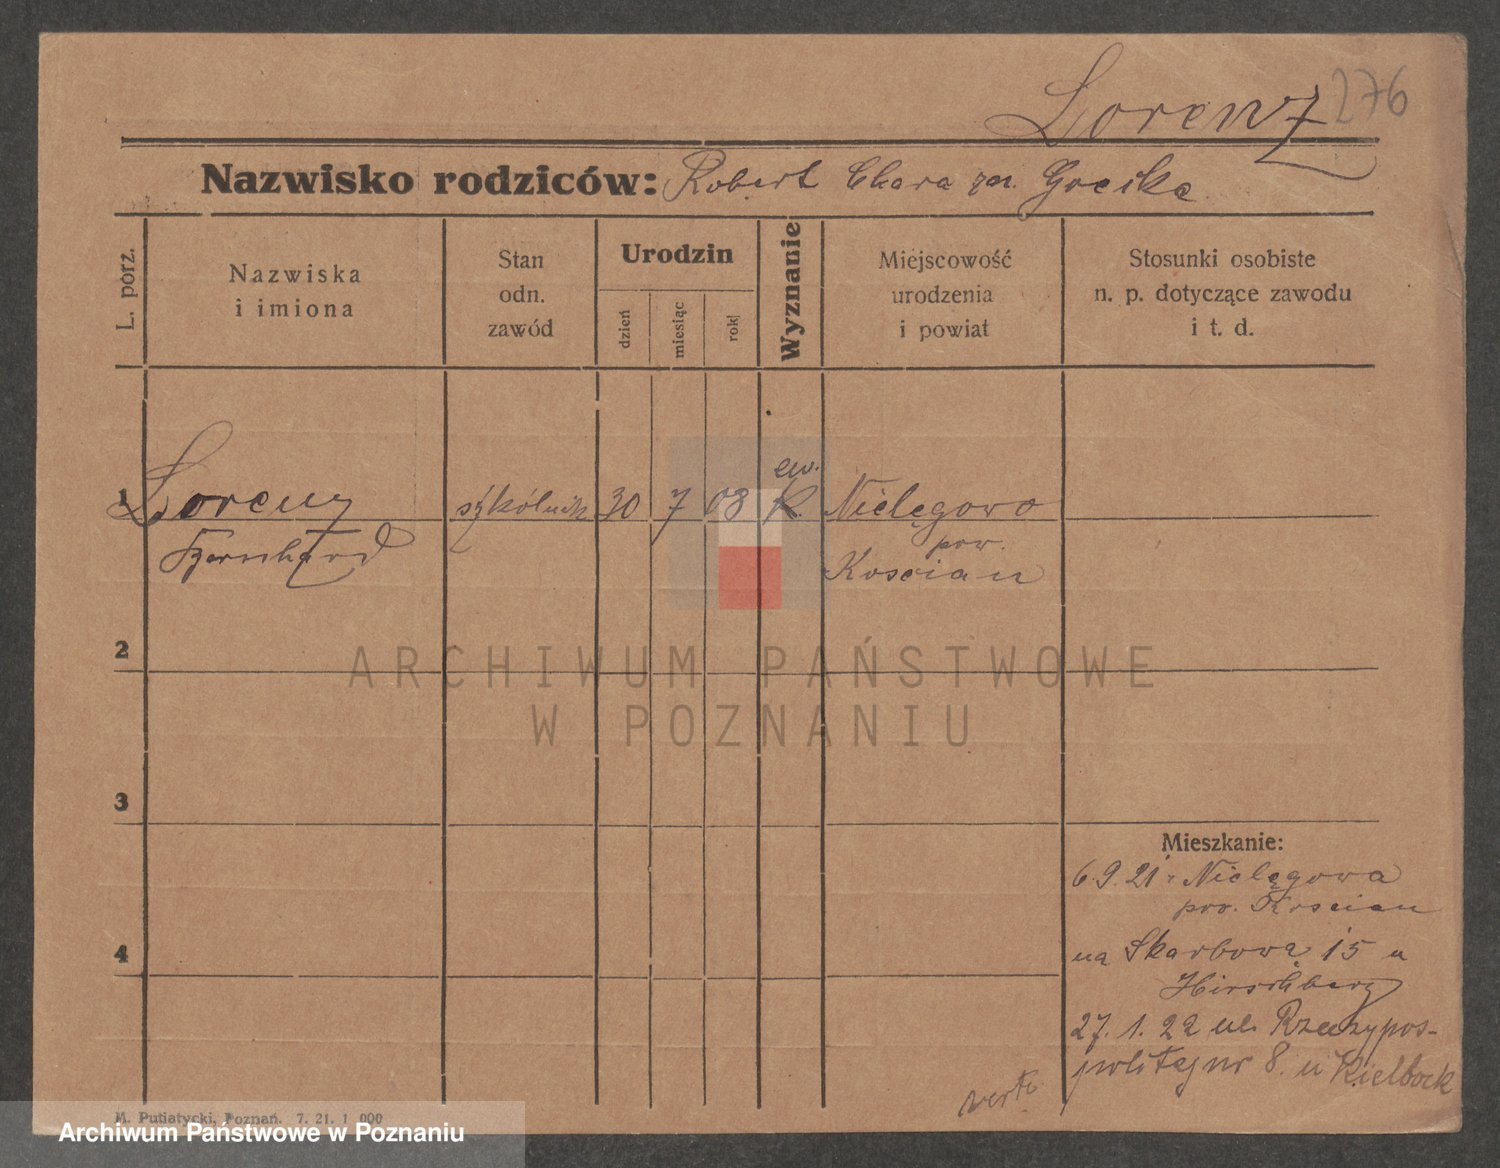 Lorenz 276
Nazwisko rodziców: Robert Clara zn. Gocike
L. porz.
Nazwiska
i imiona
Stan
odn.
zawód
Urodzin
dzień
miesiąc
rok
Wyznanie
Miejscowość
urodzenia
i powiat
Stosunki osobiste
n. p. dotyczące zawodu
i t. d.
ew.
1 Lorenz szkólnik 30 7 08 K. Nielęgowo
Bernhard pow.
Koscian
2
3
4
Mieszkanie:
6.9.21 z Nielęgowa
pow. Koscian
na Skarbową 15 u
Hirschberg
27.1.22 ul. Rzeczypos-
politej nr 8. u Kielbock
verte
M. Putiatycki, Poznań. 7. 21. 1 000
ARCHIWUM PAŃSTWOWE
W POZNANIU
Archiwum Państwowe w Poznaniu